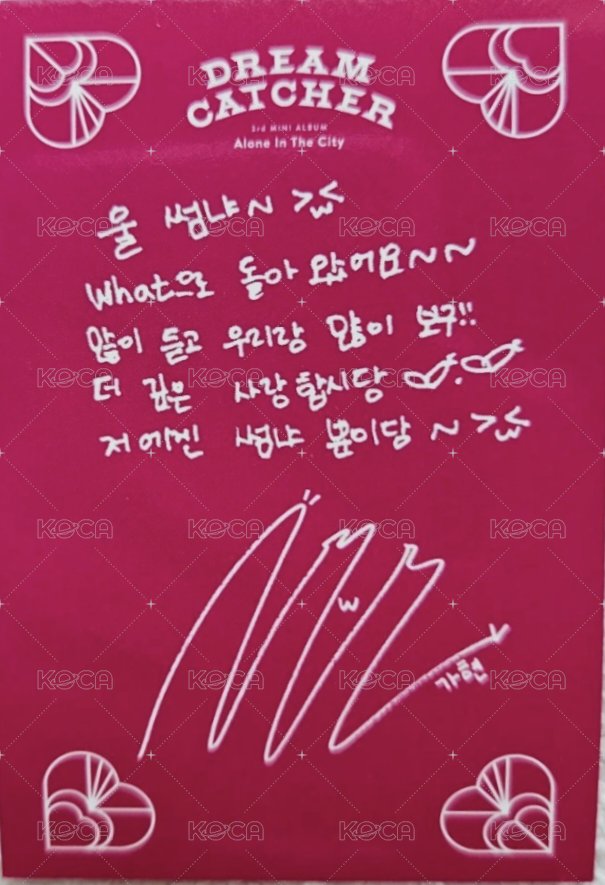 DREAM
CATCHER
3rd MINI ALBUM
Alone In The City
울 썸냐~ >_<
What으로 돌아 왔어요~~
많이 듣고 우리랑 많이 보구!!
더 깊은 사랑합시당
저에겐 썸냐 뿐이당 ~ >_<
w
가현
KOCA KOCA KOCA KOCA
KOCA KOCA KOCA KOCA
KOCA KOCA KOCA KOCA
KOCA KOCA KOCA KOCA
KOCA KOCA KOCA KOCA
KOCA KOCA KOCA KOCA